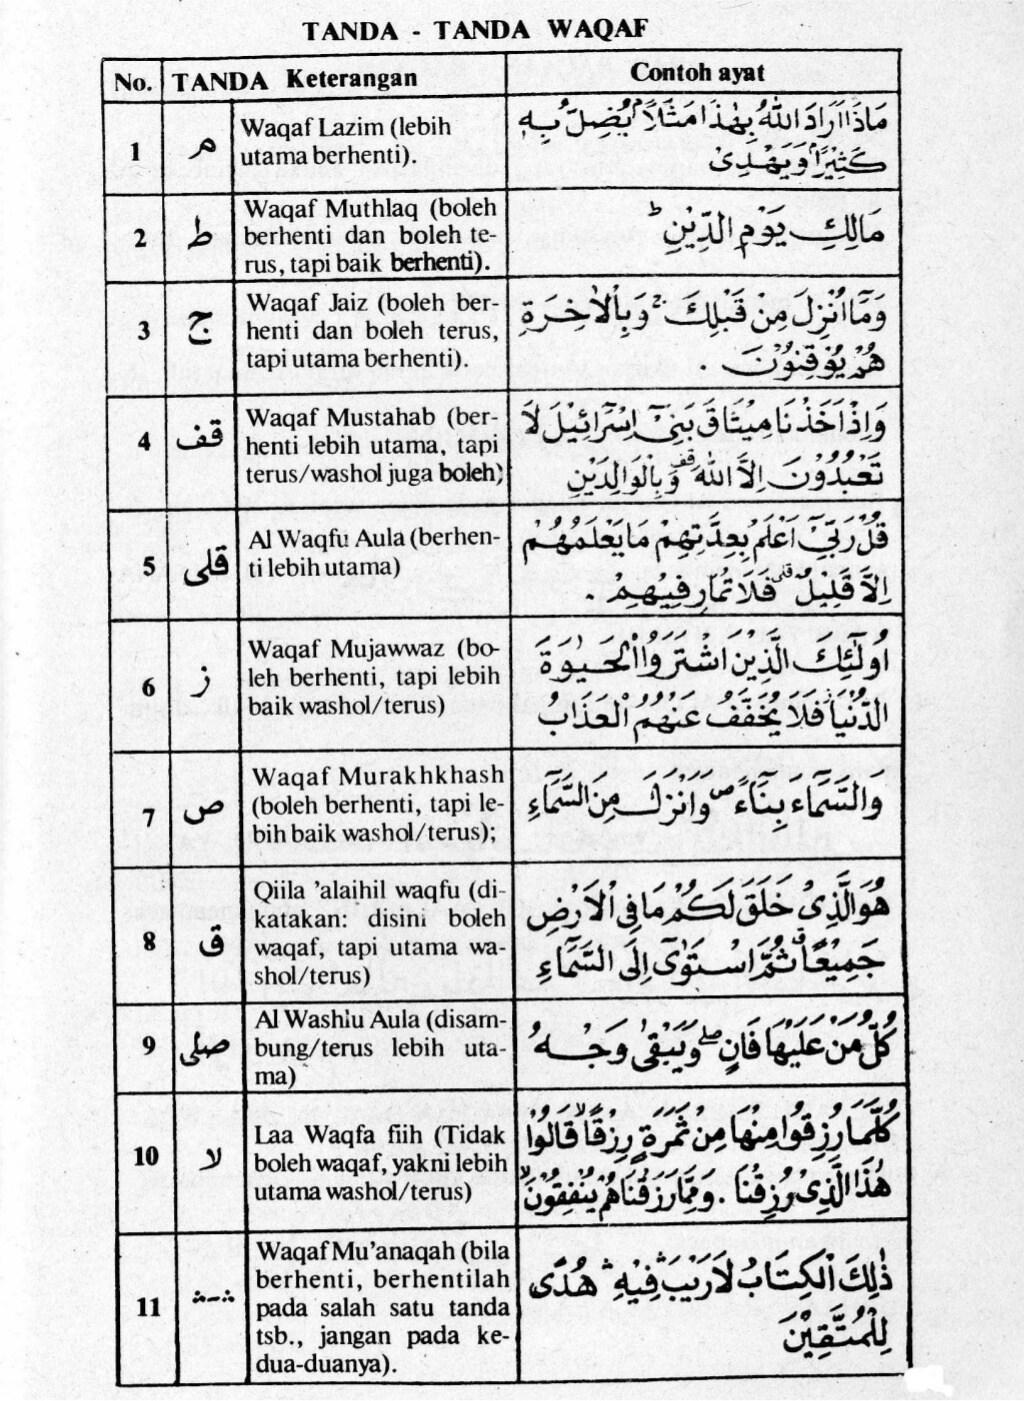 TANDA - TANDA WAQAF
No. TANDA Keterangan Contoh ayat
1 م Waqaf Lazim (lebih
utama berhenti).
مَاذَا اَرَادَ اللّٰهُ بِهٰذَا مَثَلًا ۘ يُضِلُّ بِهٖ
كَثِيْرًا وَيَهْدِيْ
2 ط Waqaf Muthlaq (boleh
berhenti dan boleh te-
rus, tapi baik berhenti).
مَالِكِ يَوْمِ الدِّيْنِ ؕ
3 ج Waqaf Jaiz (boleh ber-
henti dan boleh terus,
tapi utama berhenti).
وَمَآ اُنْزِلَ مِنْ قَبْلِكَ ۚ وَبِالْاٰخِرَةِ
هُمْ يُوْقِنُوْنَ .
4 قف Waqaf Mustahab (ber-
henti lebih utama, tapi
terus/washol juga boleh)
وَاِذْ اَخَذْنَا مِيْثَاقَ بَنِيْٓ اِسْرَآئِيْلَ لَا
تَعْبُدُوْنَ اِلَّا اللّٰهَ قف وَبِالْوَالِدَيْنِ
5 قلى Al Waqfu Aula (berhen-
ti lebih utama)
قُلْ رَبِّيْٓ اَعْلَمُ بِعِدَّتِهِمْ مَا يَعْلَمُهُمْ
اِلَّا قَلِيْلٌ ۗ فَلَا تُمَارِ فِيْهِمْ .
6 ز Waqaf Mujawwaz (bo-
leh berhenti, tapi lebih
baik washol/terus)
اُولٰٓئِكَ الَّذِيْنَ اشْتَرَوُا الْحَيٰوةَ
الدُّنْيَا ز فَلَا يُخَفَّفُ عَنْهُمُ الْعَذَابُ
7 ص Waqaf Murakhkhash
(boleh berhenti, tapi le-
bih baik washol/terus);
وَالسَّمَآءَ بِنَآءً ص وَاَنْزَلَ مِنَ السَّمَآءِ
8 ق Qiila 'alaihil waqfu (di-
katakan: disini boleh
waqaf, tapi utama wa-
shol/terus)
هُوَ الَّذِيْ خَلَقَ لَكُمْ مَا فِى الْاَرْضِ
جَمِيْعًا ق ثُمَّ اسْتَوٰٓى اِلَى السَّمَآءِ
9 صلى Al Washlu Aula (disam-
bung/terus lebih uta-
ma)
كُلُّ مَنْ عَلَيْهَا فَانٍ ۖ وَيَبْقٰى وَجْهُ
10 لا Laa Waqfa fiih (Tidak
boleh waqaf, yakni lebih
utama washol/terus)
كُلَّمَا رُزِقُوْا مِنْهَا مِنْ ثَمَرَةٍ رِزْقًا ۙ قَالُوْا
هٰذَا الَّذِيْ رُزِقْنَا . وَمِمَّا رَزَقْنَاهُمْ يُنْفِقُوْنَ ۙ
11 ۛ - ۛ Waqaf Mu'anaqah (bila
berhenti, berhentilah
pada salah satu tanda
tsb., jangan pada ke-
dua-duanya).
ذٰلِكَ الْكِتَابُ لَا رَيْبَ ۛ فِيْهِ ۛ هُدًى
لِلْمُتَّقِيْنَ